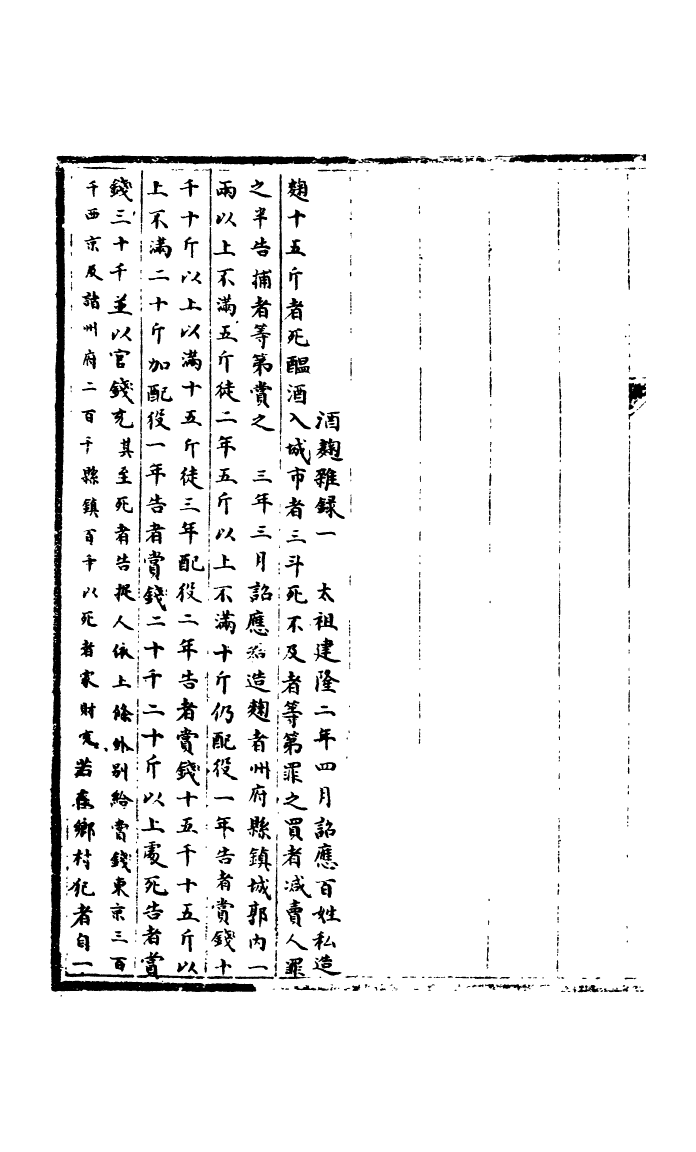 酒麴雜録一　太祖建隆二年四月詔應百姓私造
麴十五斤者死醖酒入城市者三斗死不及者等第罪之買者減賣人罪
之半告捕者等第賞之　三年三月詔應造麴者州府縣鎮城郭内一
兩以上不滿五斤徒二年五斤以上不滿十斤仍配役一年告者賞錢十
千十斤以上以滿十五斤徒三年配役二年告者賞錢十五千十五斤以
上不滿二十斤加配役一年告者賞錢二十千二十斤以上處死告者賞
錢三十千並以官錢充其至死者告捉人依上條外别給賞錢東京三百
千西京及諸州府二百千縣鎮百千以死者家財充若在鄉村犯者自一